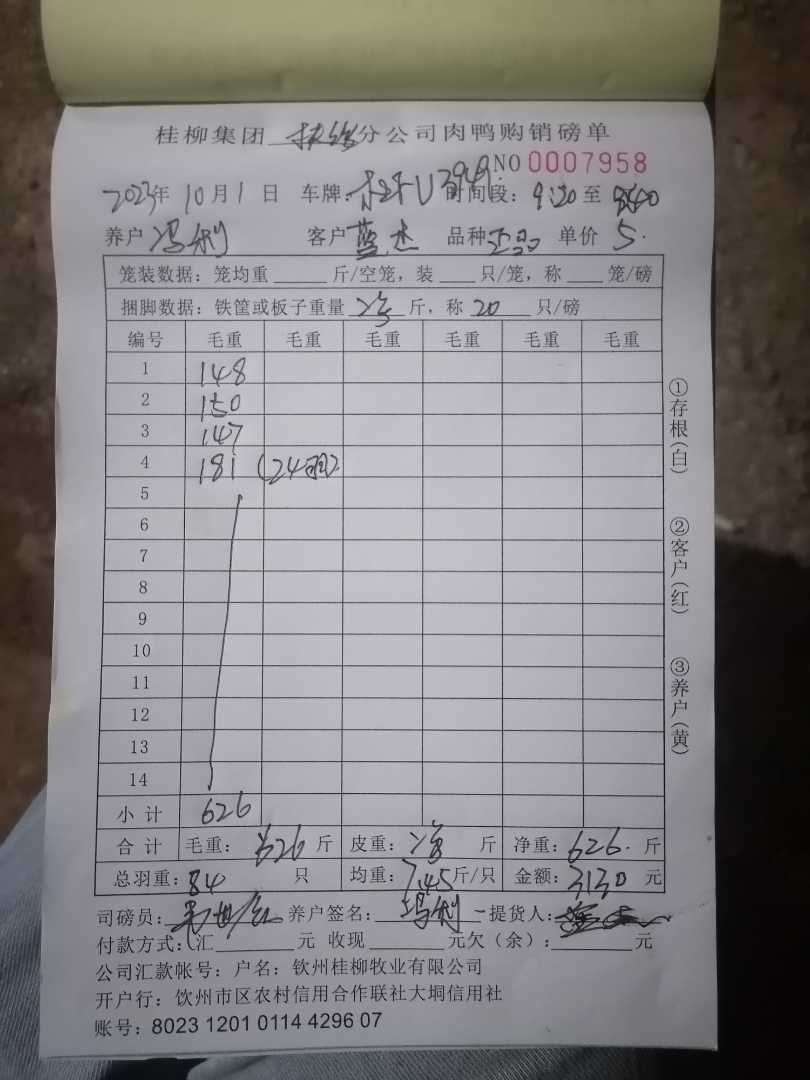 桂柳集团 分公司肉鸭购销磅单
NO 0007958
2023年 10月1日 车牌: 时间段: 9:20 至
养户 冯利 客户 蓝杰 品种 正品 单价 5.
笼装数据: 笼均重 斤/空笼, 装 只/笼, 称 笼/磅
捆脚数据: 铁筐或板子重量 净 斤, 称 20 只/磅
编号 毛重 毛重 毛重 毛重 毛重 毛重
1 148
2 150
3 147
4 181 (24羽)
5
6
7
8
9
10
11
12
13
14
小计 626
合计 毛重: 626 斤 皮重: 净 斤 净重: 626. 斤
总羽重: 84 只 均重: 7.45 斤/只 金额: 3130 元
司磅员: 养户签名: 冯利 提货人:
付款方式: 汇 元 收现 元欠(余): 元
公司汇款帐号: 户名: 钦州桂柳牧业有限公司
开户行: 钦州市区农村信用合作联社大垌信用社
账号: 8023 1201 0114 4296 07
①存根(白)
②客户(红)
③养户(黄)